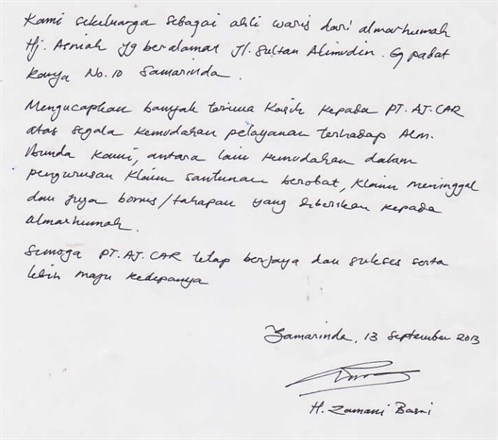 Kami sekeluarga sebagai ahli waris dari almarhumah
Hj. Asniah yg beralamat Jl. Sultan Alimudin. Gg padat
karya No. 10 Samarinda.
Mengucapkan banyak terima kasih kepada PT. AJ. CAR
atas segala kemudahan pelayanan terhadap Alm.
Ibunda kami, antara lain kemudahan dalam
pengurusan klaim santunan berobat, klaim meninggal
dan juga bonus/tahapan yang diberikan kepada
almarhumah.
Semoga PT. AJ. CAR tetap berjaya dan sukses serta
lebih maju kedepanya
Samarinda, 13 September 2013
H. Zamani Basni